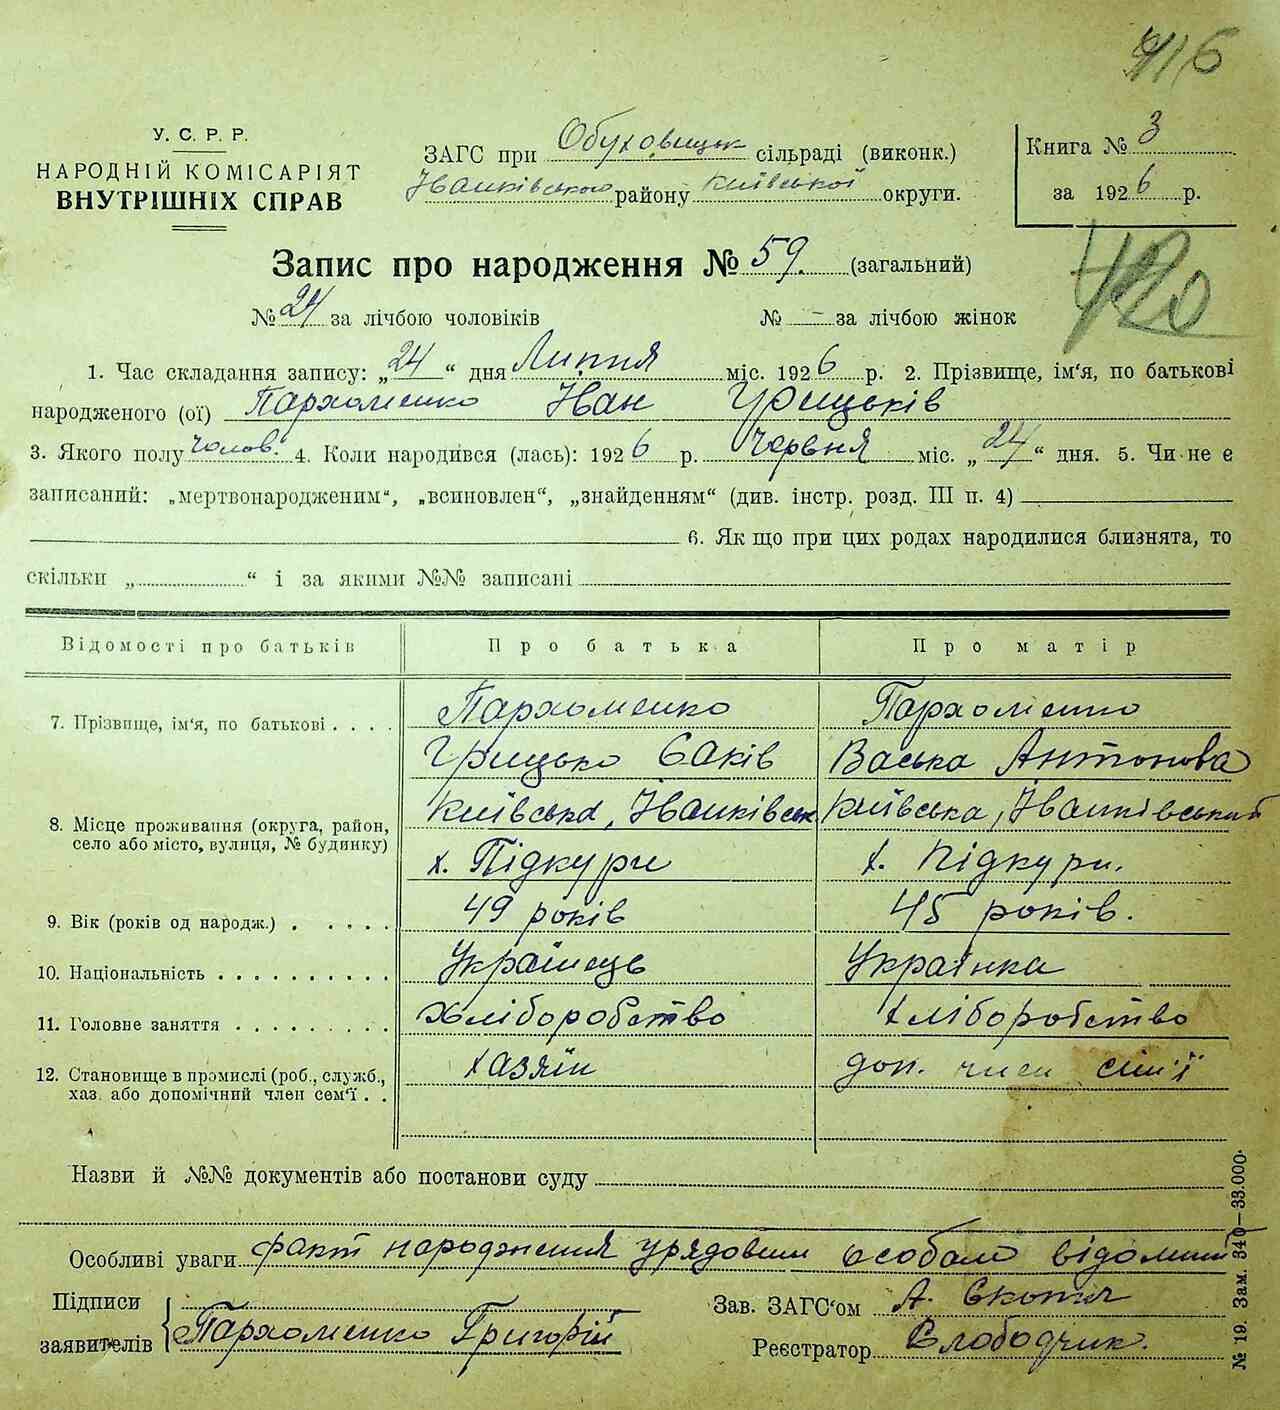 У. С. Р. Р.
НАРОДНІЙ КОМІСАРІЯТ
ВНУТРІШНІХ СПРАВ
ЗАГС при Обуховицьк сільраді (виконк.)
Іванківського району Київської округи.
Книга № 3
за 1926 р.
420
Запис про народження № 59. (загальний)
№ 24 за лічбою чоловіків № - за лічбою жінок
1. Час складання запису: „24“ дня Липня міс. 1926 р. 2. Прізвище, ім'я, по батькові
народженого (ої) Пархоменко Іван Грицьків
3. Якого полу чолов. 4. Коли народився (лась): 1926 р. Червня міс. „24“ дня. 5. Чи не є
записаний: „мертвонародженим“, „всиновлен“, „знайденням“ (див. інстр. розд. III п. 4)
6. Як що при цих родах народилися близнята, то
скільки „ “ і за якими №№ записані
Відомості про батьків Про батька Про матір
7. Прізвище, ім'я, по батькові . . . . Пархоменко Пархоменко
Грицько Єаків Васька Антонова
8. Місце проживання (округа, район, Київська, Іванківськ Київська, Іванківський
село або місто, вулиця, № будинку)
х. Підкури х. Підкури.
9. Вік (років од народж.) . . . . . 49 років 45 років.
10. Національність . . . . . . . . . . Українець Українка
11. Головне заняття . . . . . . . . . Хліборобство Хліборобство
12. Становище в промислі (роб., служб., хазяїн доп. член сім'ї
хаз. або допомічний член сем'ї . .
Назви й №№ документів або постанови суду
Особливі уваги факт народження урядовим особам відомий
Підписи
заявителів Пархоменко Григорій
Зав. ЗАГС'ом А.
Реєстратор Слободчик.
№ 19. Зам. 340—33.000.